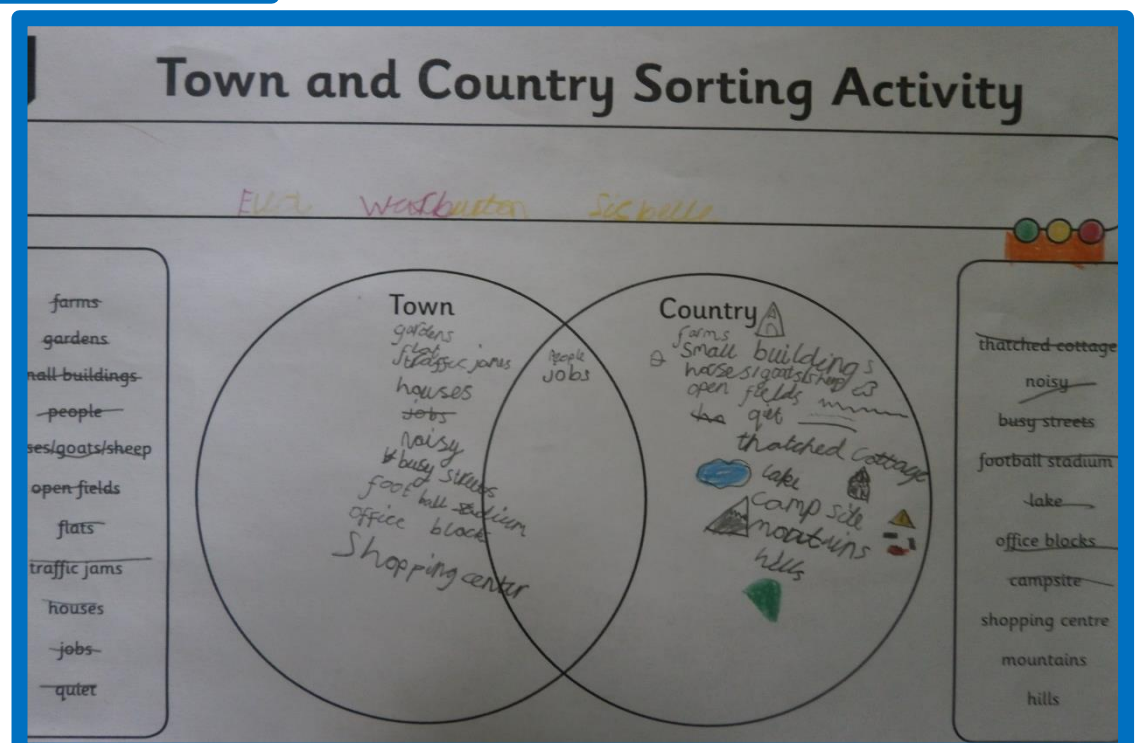 Town and Country Sorting Activity
farms
gardens
nall buildings
people
ses/goats/sheep
open fields
flats
traffic jams
houses
jobs
quiet
Town
gardens
flat
traffic jams
houses
jobs
Noisy
busy streets
foot ball stadium
office block
Shopping center
People
jobs
Country
farms
Small buildings
horses/goats/sheep
open fields
qiet
thatched cottage
lake
camp site
hills
thatched cottage
noisy
busy streets
football stadium
lake
office blocks
campsite
shopping centre
mountains
hills